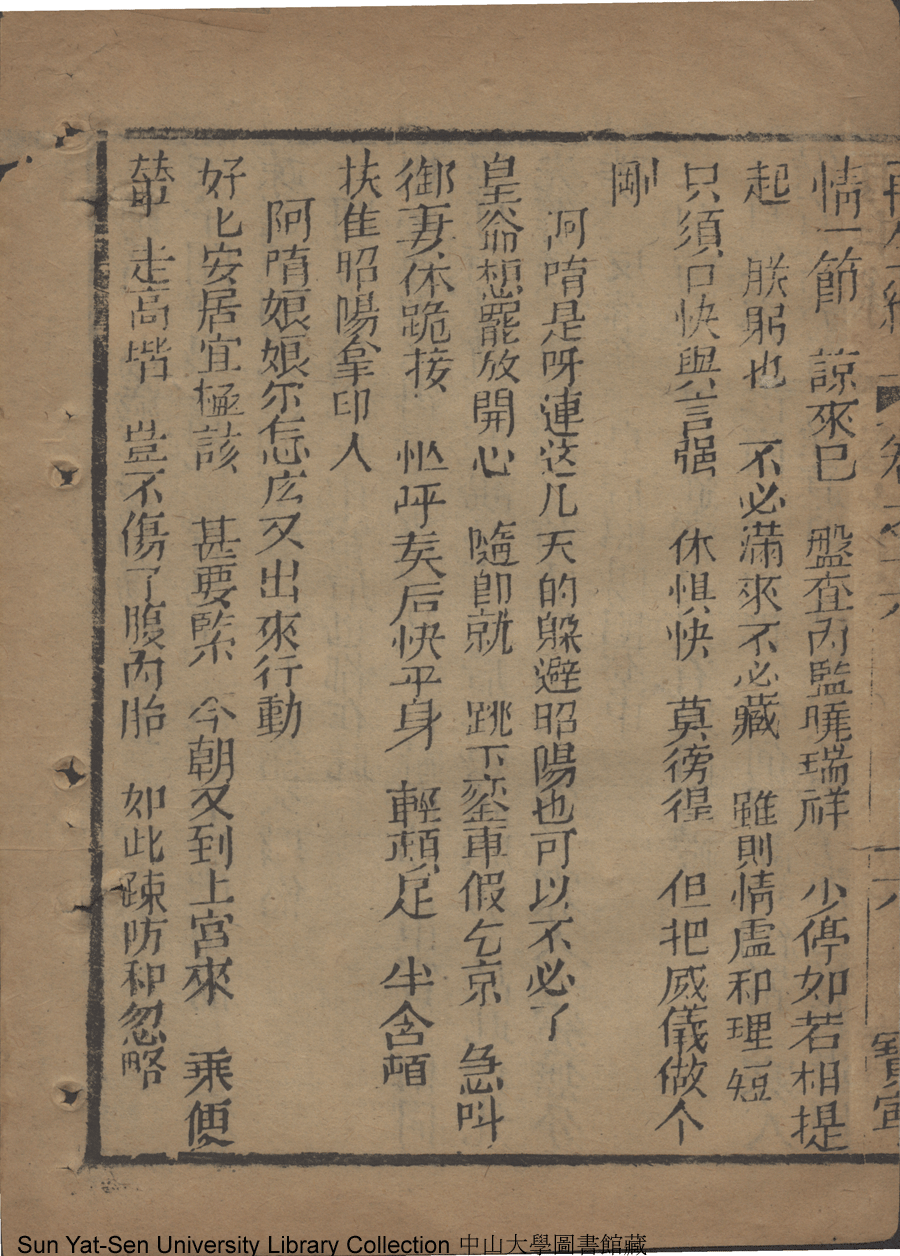 再生緣 卷之十六 十八 寶寧
情一節 諒來已 盤查內監曉瑞祥 少停如若相提
起 朕躬也 不必滿來不必藏 雖則情虛和理短
只須口快與言强 休惧快 莫徬徨 但把威儀做个
剛
阿唷是呀連这几天的躲避昭陽也可以不必了
皇爺想罷放開心 隨即就 跳下鑾車假乞京 急叫
御妻休跪接 忙呼矣后快平身 輕頓足 半含頤
扶隹昭陽拿印人
阿唷娘娘尔怎庅又出來行動
好匕安居宜極該 甚要緊 今朝又到上宮來 乘便
輦 走高堦 豈不傷了腹內胎 如此踈防和忽略
Sun Yat-Sen University Library Collection 中山大學圖書館藏